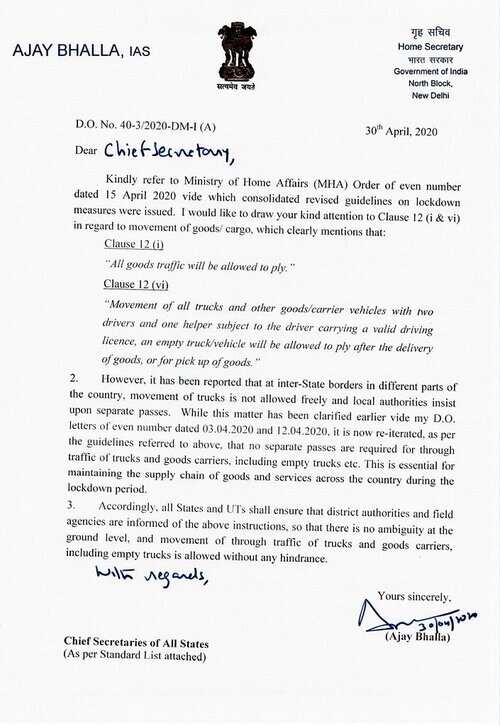 AJAY BHALLA, IAS
सत्यमेव जयते
गृह सचिव
Home Secretary
भारत सरकार
Government of India
North Block,
New Delhi
D.O. No. 40-3/2020-DM-I (A)
30th April, 2020
Dear Chief Secretary,
Kindly refer to Ministry of Home Affairs (MHA) Order of even number
dated 15 April 2020 vide which consolidated revised guidelines on lockdown
measures were issued. I would like to draw your kind attention to Clause 12 (i & vi)
in regard to movement of goods/ cargo, which clearly mentions that:
Clause 12 (i)
"All goods traffic will be allowed to ply."
Clause 12 (vi)
"Movement of all trucks and other goods/carrier vehicles with two
drivers and one helper subject to the driver carrying a valid driving
licence, an empty truck/vehicle will be allowed to ply after the delivery
of goods, or for pick up of goods."
2. However, it has been reported that at inter-State borders in different parts of
the country, movement of trucks is not allowed freely and local authorities insist
upon separate passes. While this matter has been clarified earlier vide my D.O.
letters of even number dated 03.04.2020 and 12.04.2020, it is now re-iterated, as per
the guidelines referred to above, that no separate passes are required for through
traffic of trucks and goods carriers, including empty trucks etc. This is essential for
maintaining the supply chain of goods and services across the country during the
lockdown period.
3. Accordingly, all States and UTs shall ensure that district authorities and field
agencies are informed of the above instructions, so that there is no ambiguity at the
ground level, and movement of through traffic of trucks and goods carriers,
including empty trucks is allowed without any hindrance.
With regards,
Yours sincerely,
30/04/2020
(Ajay Bhalla)
Chief Secretaries of All States
(As per Standard List attached)